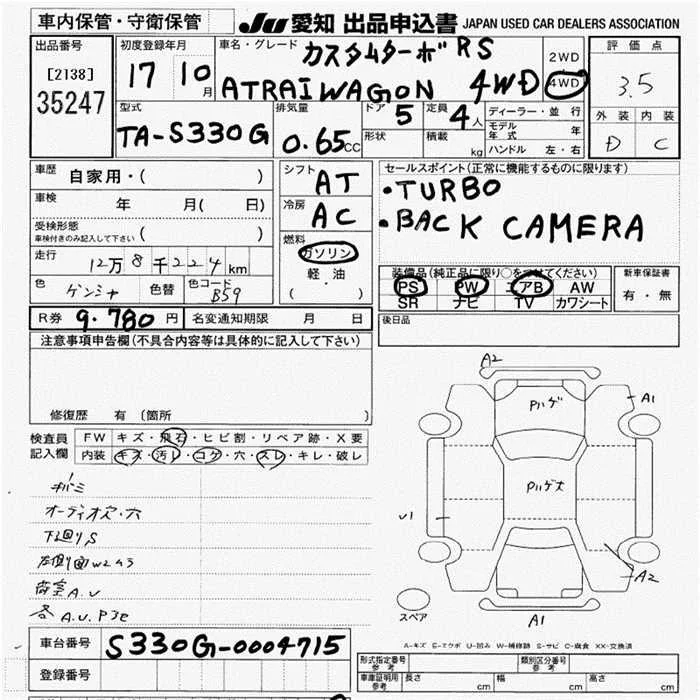 車内保管・守衛保管
JU 愛知 出品申込書 JAPAN USED CAR DEALERS ASSOCIATION
出品番号
[2138]
35247
初度登録年月
17 10月
車名・グレード
カスタムターボRS
ATRAIWAGON 4WD
2WD
4WD
評価点
3.5
外装 内装
D C
型式
TA-S330G
排気量
0.65CC
ドア 5
定員 4人
形状
積載 kg
ディーラー・並行
モデル年式 年
ハンドル 左・右
車歴 自家用・( )
車検 年 月( 日)
受検形態
車検付きのみ記入して下さい ( )
走行 12万8千224km
色 ゲンシャ 色替 色コード B59
シフト AT
冷房 AC
燃料
ガソリン
軽・油
( )
セールスポイント(正常に機能するものに限ります)
・TURBO
・BACK CAMERA
装備品(純正品に限り○をつけてください)
PS PW エアB AW
SR ナビ TV カワシート
新車保証書
有・無
R券 9.780円 名変通知期限 月 日
後日品
注意事項申告欄(不具合内容等は具体的に記入して下さい)
修復歴 有 (箇所
検査員記入欄
FW キズ・飛石・ヒビ割・リペア跡・X要
内装 キズ・汚レ・コゲ・穴・スレ・キレ・破レ
オーディオ欠・穴
下廻りS
荷室A.U
各A.U.P3E
A2
A1
Pハゲ
Pハゲ大
U1
A2
A1
スペア
A-キズ E-エクボ U-凹み W-補修跡 S-サビ C-腐食 XX-交換済
車台番号 S330G-0004715
登録番号
形式指定番号 参考
類別区分番号 参考
車庫証明用 参考
長さ cm 幅 cm 高さ cm